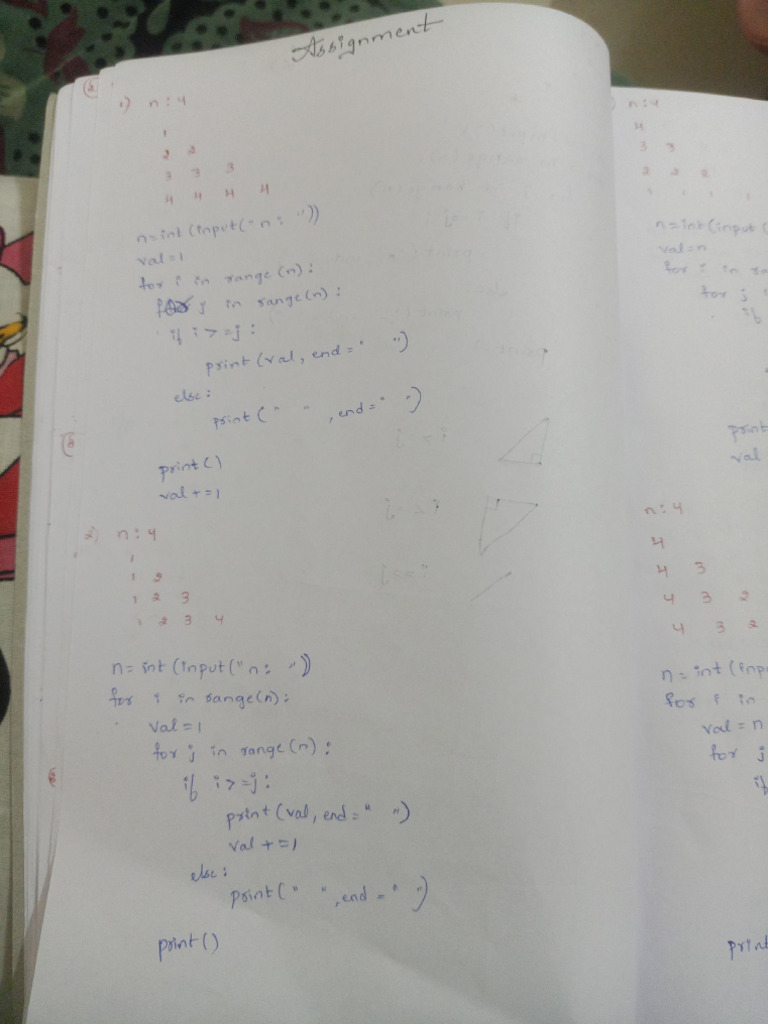 Assignment
1) n : 4
1
2 2
3 3 3
4 4 4 4
n=int(input("n: "))
val=1
for i in range(n):
for j in range(n):
if i>=j:
print(val, end=" ")
else:
print(" ", end=" ")
print()
val+=1
2) n : 4
1
1 2
1 2 3
1 2 3 4
n=int(input("n: "))
for i in range(n):
val=1
for j in range(n):
if i>=j:
print(val, end=" ")
val+=1
else:
print(" ", end=" ")
print()
n : 4
4
3 3
2 2 2
1 1 1 1
n=int(input(
val=n
for i in
for j
if
print
val
n : 4
4
4 3
4 3 2
4 3 2
n=int(inp
for i in
val=n
for j
if
print